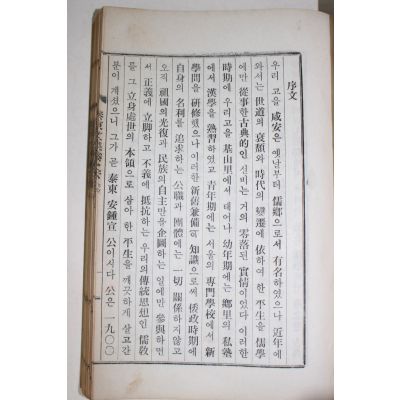 序文
우리 고을 咸安은 옛날부터 儒鄕으로서 有名하였으나 近年에
와서는 世道의 衰頹와 時代의 變遷에 依하여 한 平生을 儒學
에만 從事한 古典的인 선비는 거의 零落된 實情이었다 이러한
時期에 우리 고을 基山里에서 태어나 幼年期에는 鄕里의 私塾
에서 漢學을 熟習하였고 靑年期에는 서울의 專門學校에서 新
學問을 硏修했으나 이러한 新舊兼備의 知識으로써 倭政時期에
自身의 名利를 追求하는 公職과 團體에는 一切 關係하지 않고
오직 祖國의 光復과 民族의 自主만을 企圖하는 일에만 參與하면
서 正義에 立脚하고 不義에 抵抗하는 우리의 傳統思想인 儒敎
를 그 立身處世의 本領으로 살아 한 平生을 깨끗하게 살고 간
분이 계셨으니 그가 곧 泰東 安鍾宣 公이시다 公은 一九〇〇